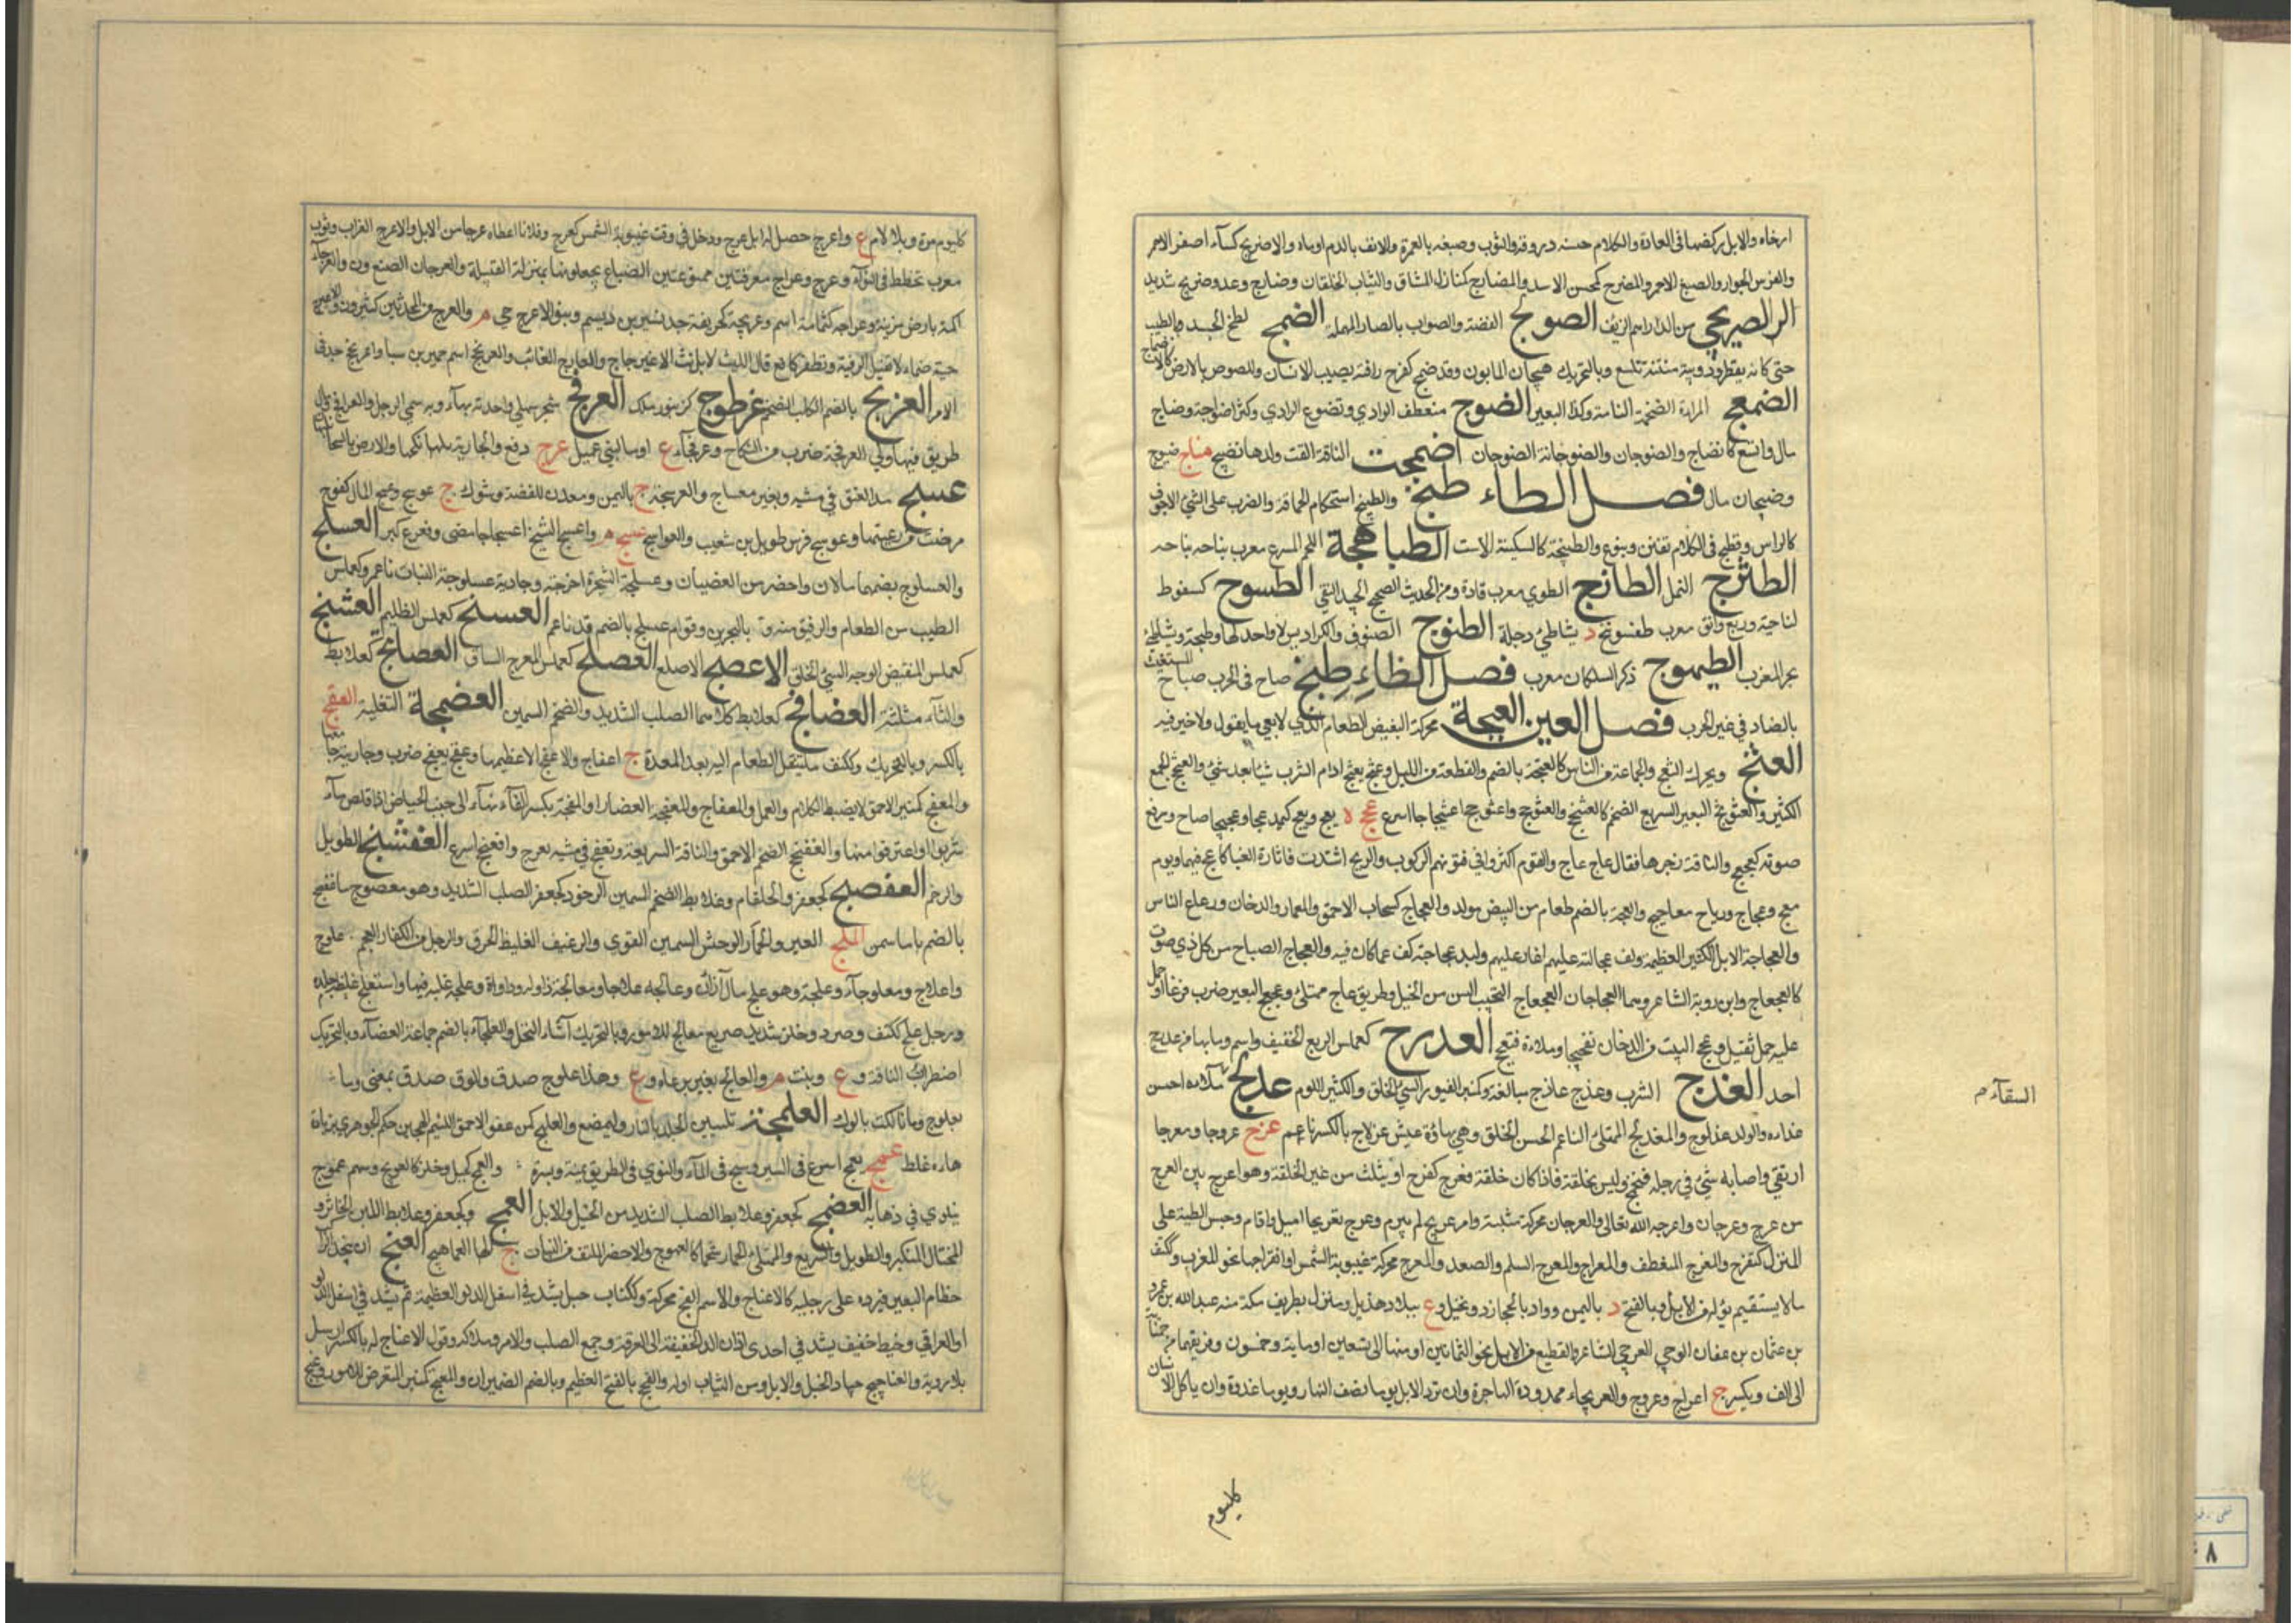 ارخاه والابل ركضها فى العادة والكلام حسنه و والثوب وصبغه بالحمرة والانف بالدم اوماه والاضريج كساء اصفر الاحمر
والفرس الجواد والصبغ الاحمر والمضرج كمحسن الاسد والمضارج كمنازل المشاق والثياب الخلقان وضارج وعدو ضريج شديد
من الدراهم الزيف الصوبج الفضة والصواب بالصاد المهملة الضمج لطخ الجسد بالطيب
حتى كانه يقطر ودويبة منتنة تلسع وبالتحريك هيجان المابون وقد ضمج كفرح وافة يصيب الانسان واللصوص بالارض كالاضماج
الضمعج المراة الضخمة التامة وكذا البعير الضوج منعطف الوادي وتضوع الوادي وكثر اضواجه وضاج
مال واتسع كانضاج والضوجان والضوجانة الصوجان اضمجت الناقة القت ولدها تضيج ضاج ضيوج
وضيجان مال فصل الطاء طبج والطبج استحكام الحماقة والضرب على الشئ الاجوف
كالراس وتطبج فى الكلام تفنن وينوع والطبيجة كالسكينة الاست الطباهجة اللحم المسرح معرب
الطثرج النمل الطازج الطري معرب تازه ومنه الحديث الصحيح الجيد النقي الطسوج كسفود
الناحية وربع دانق معرب طفسونج د بشاطئ دجلة الطنوج الصنوف والكراريس لا واحد لها وطنجة د بشاطئ
بحر المغرب الطيهوج ذكر السلكان معرب فصل الظاء ظج صاح فى الحرب صياح المستغيث
بالضاد فى غير الحرب فصل العين العبجة محركة البغيض الطغام الذي لا يعي ما يقول ولا خير فيه
العثج ويحرك الثعج والجماعة من الناس كالعثجة بالضم والقطعة من الليل وعثج يعثج ادام الشرب شيئا بعد شئ والعثج الجمع
الكثير والعثوثج البعير السريع الضخم كالعثجج والعثوجج واعثوجج اعثيجاجا اسرع عج لا يعج ويعج كيمد عجا وعجيجا صاح ورفع
صوته كعجعج والناقة زجرها فقال عاج عاج والقوم اكثروا فى فنونهم الركوب والريح اشتدت فاثارت الغبار كاعج فيهما ويوم
معج وعجاج ورياح معاجيج والعجة بالضم طعام من البيض مولد والعجاج كسحاب الاحمق والغبار والدخان ورعاع الناس
والعجاجة الابل الكثير العظيمة ولف عجاجته عليهم اغار عليهم ولبد عجاجته كف عما كان فيه والعجاج الصياح من كل ذي صوت
كالعجعاج وابن روبة الشاعر وهما العجاجان العجعاج النجيب المسن من الخيل وطريق عاج ممتلئ وعجعج البعير ضرب فرغا او حمل
عليه حمل ثقيل وعجج البيت من الدخان تعجيجا وملاءه فتعجج العدرج كعملس السريع الخفيف واسم وما بها من عدرج
احد العذج الشرب وعذج عاذج مبالغة وكمنبر الغيور السيئ الخلق والكثير اللوم عذلج السقاء ملاءه احسن
غذاءه والولد عذلوج والمعذلج الممتلئ الناعم الحسن الخلق وهي بهاء وعيش عذلاج بالكسر ناعم عرج عروجا ومعرجا
ارتقى واصابه شئ فى رجله فخمع وليس بخلقة فاذا كان خلقة فعرج كفرح او يثلث من غير الخلقة وهو اعرج بين العرج
من عرج وعرجان واعرجه الله تعالى والعرجان محركة مشيته وامر عريج لم يبرم وعرج تعريجا اميل واقام وحبس المطية على
المنزل كتعرج والعرج المنعطف والمعراج والمعرج السلم والمصعد والعرج محركة غيبوبة الشمس او انعراجها نحو المغرب وككتف
ما لا يستقيم بوله من الابل وبالفتح د باليمن وواد بالحجاز ذو نخيل وع ببلاد هذيل ومنزل بطريق مكة منه عبد الله بن عمرو
بن عثمان بن عفان العرجي الشاعر والقطيع من الابل نحو الثمانين او منها الى تسعين او مائة وخمسون وفويقها من خمسمائة
الى الف ويكسر ج اعراج وعروج والعريجاء ممدودة الهاجرة وان ترد الابل يوما نصف النهار ويوما غدوة وان ياكل الانسان
السقاء م
كليوم
كليوم مرة وبلا لام ع واعرج حصل له ابل عرج ودخل فى وقت غيبوبة الشمس كعرج وفلانا اعطاه عرجا من الابل والاعرج الغراب وثوب
معرب مخطط فى التواء وعرج وعراج معرفتين ممنوعتين الضباع يجعلونها بمنزلة القبيلة والعرجاء الضبع
اكمة بارض مزينة وعراجه كثمامة اسم وعريجة كحنيفة جد بشير بن ديسم وبنو الاعرج حي م والعرج من المحدثين كثيرون والاعيرج
حية صماء لا تقبل الرقية وتطفر كافعى قال الليث لا يؤنث الاعيرجات والعارج الغائب والعرنجج اسم حمير بن سبا واعرنجج جد فى
الامر العربج بالضم الكلب الضخم عرطوج كزنبور ملك العرفج شجر سهلي واحدته بهاء وبه سمي الرجل والعرافج رمال لا
طريق فيها ولي العرفجة ضرب من النكاح وعرفجاء ع او ماء لبني عميل عزج دفع والجارية نكحها والارض بالمسحاة
عسج مد العنق فى مشيه وبعير معساج والعوسجة ج باليمن ومعدن للفضة وشوك ج عوسج وعسج المال كفرح
مرضت من رعيتها وعوسج فرس طويل بن شعيب والعواسج م واعسج الشيخ اعسجاجا مضى وتعوج كبرا العسلج
والعسلوج بضمهما ما لان واخضر من القضبان وعسلجت الشجرة اخرجته وجارية عسلوجة النبات ناعمة وكعملس
الطيب من الطعام والرقيق منه وة بالبحرين وقوام عسلج بالضم قد ناعم العسنج كعملس الظليم العشنج
كعملس المنقبض الوجه السيئ الخلق الاعصج الاصلع العصلج كعملس المعوج الساق العصابج كعلابط
والثاء مثلثة العضافج كعلابط كلاهما الصلب الشديد والضخم السمين العضمجة الثعلبة العفج
بالكسر وبالتحريك وككتف ما ينتقل الطعام اليه بعد المعدة ج اعفاج والاعفج الاعظيمها وعفج يعفج ضرب وجاريته جامعها
والمعفج كمنبر الاحمق لا يضبط الكلام والعمل والمعفاج والمعفجة العصا والعفجة بكسر الفاء نهاء الى جنب الحياض اذا قلص ماء
شربوا واغترفوا منها والعفنجج الضخم الاحمق والناقة السريعة وتعفج فى مشيه تعرج واعفنجج اسرع العفشج الطويل
والرخم العفضج كجعفر والحلقام وعلابط الضخم السمين الرخو وكجعفر الصلب الشديد وهو معضوج ما عفضج
بالضم ما سمن العلج العير والحمار الوحش السمين القوي والرغيف الغليظ الحرف والرجل من الكفار العجم ج علوج
واعلاج ومعلوجاء وعلجة وهو علج مال ازاؤه وعالجه علاجا ومعالجة زاوله وداواه وعلجه غلبه فيها واستعلج غلظ جلده
ورجل علج ككتف وصرد وخلر شديد صريع معالج للامور وبالتحريك اشاء النخل والعلجانة بالضم جماعة العضاه وبالتحريك
اضطراب الناقة وع وبنت م والعالج بعير يرعاه وع وهذا علوج صدق والوق صدق بمعنى وما
تعلوج وما تالكت بالوك العلهج تلسين الجلد بالنار ليمضغ والعلهج كمزعفر الاحمق اللئيم الهجين حكم الجوهري بزيادة
هاءه غلط عمج يعمج اسرع فى السير وسبح فى الماء والتوي فى الطريق يمنة ويسرة والعمج كجبل وخلر كالعومج وسهم عموج
يتلوي فى ذهابه العضمج كجعفر وعلابط الصلب الشديد من الخيل والابل العمهج وكجعفر وعلابط اللبن الخاثر و
المختال المتكبر والطويل والسريع والممتلئ لحما وشحما كالعمهوج والاخضر الملتف من النبات ج كلها العماهيج العنج ان يجذب الراكب
خطام البعير فيرده على رجليه كالاعناج والاسم العنج محركة وككتاب حبل يشد فى اسفل الدلو العظيمة ثم يشد فى اسفل الدلو
او العراقي وخيط خفيف يشد فى احدى اذان الدلو الخفيفة الى العرقوة ووجع الصلب والامر وملاكه وقول لا عناج له بالكسر ارسل
بلا روية والعناجيج جياد الخيل والابل ومن الشباب اوله والعنج بالفتح العظيم وبالضم الضيمران والمعنج كمنبر المتعرض للامور وعنج